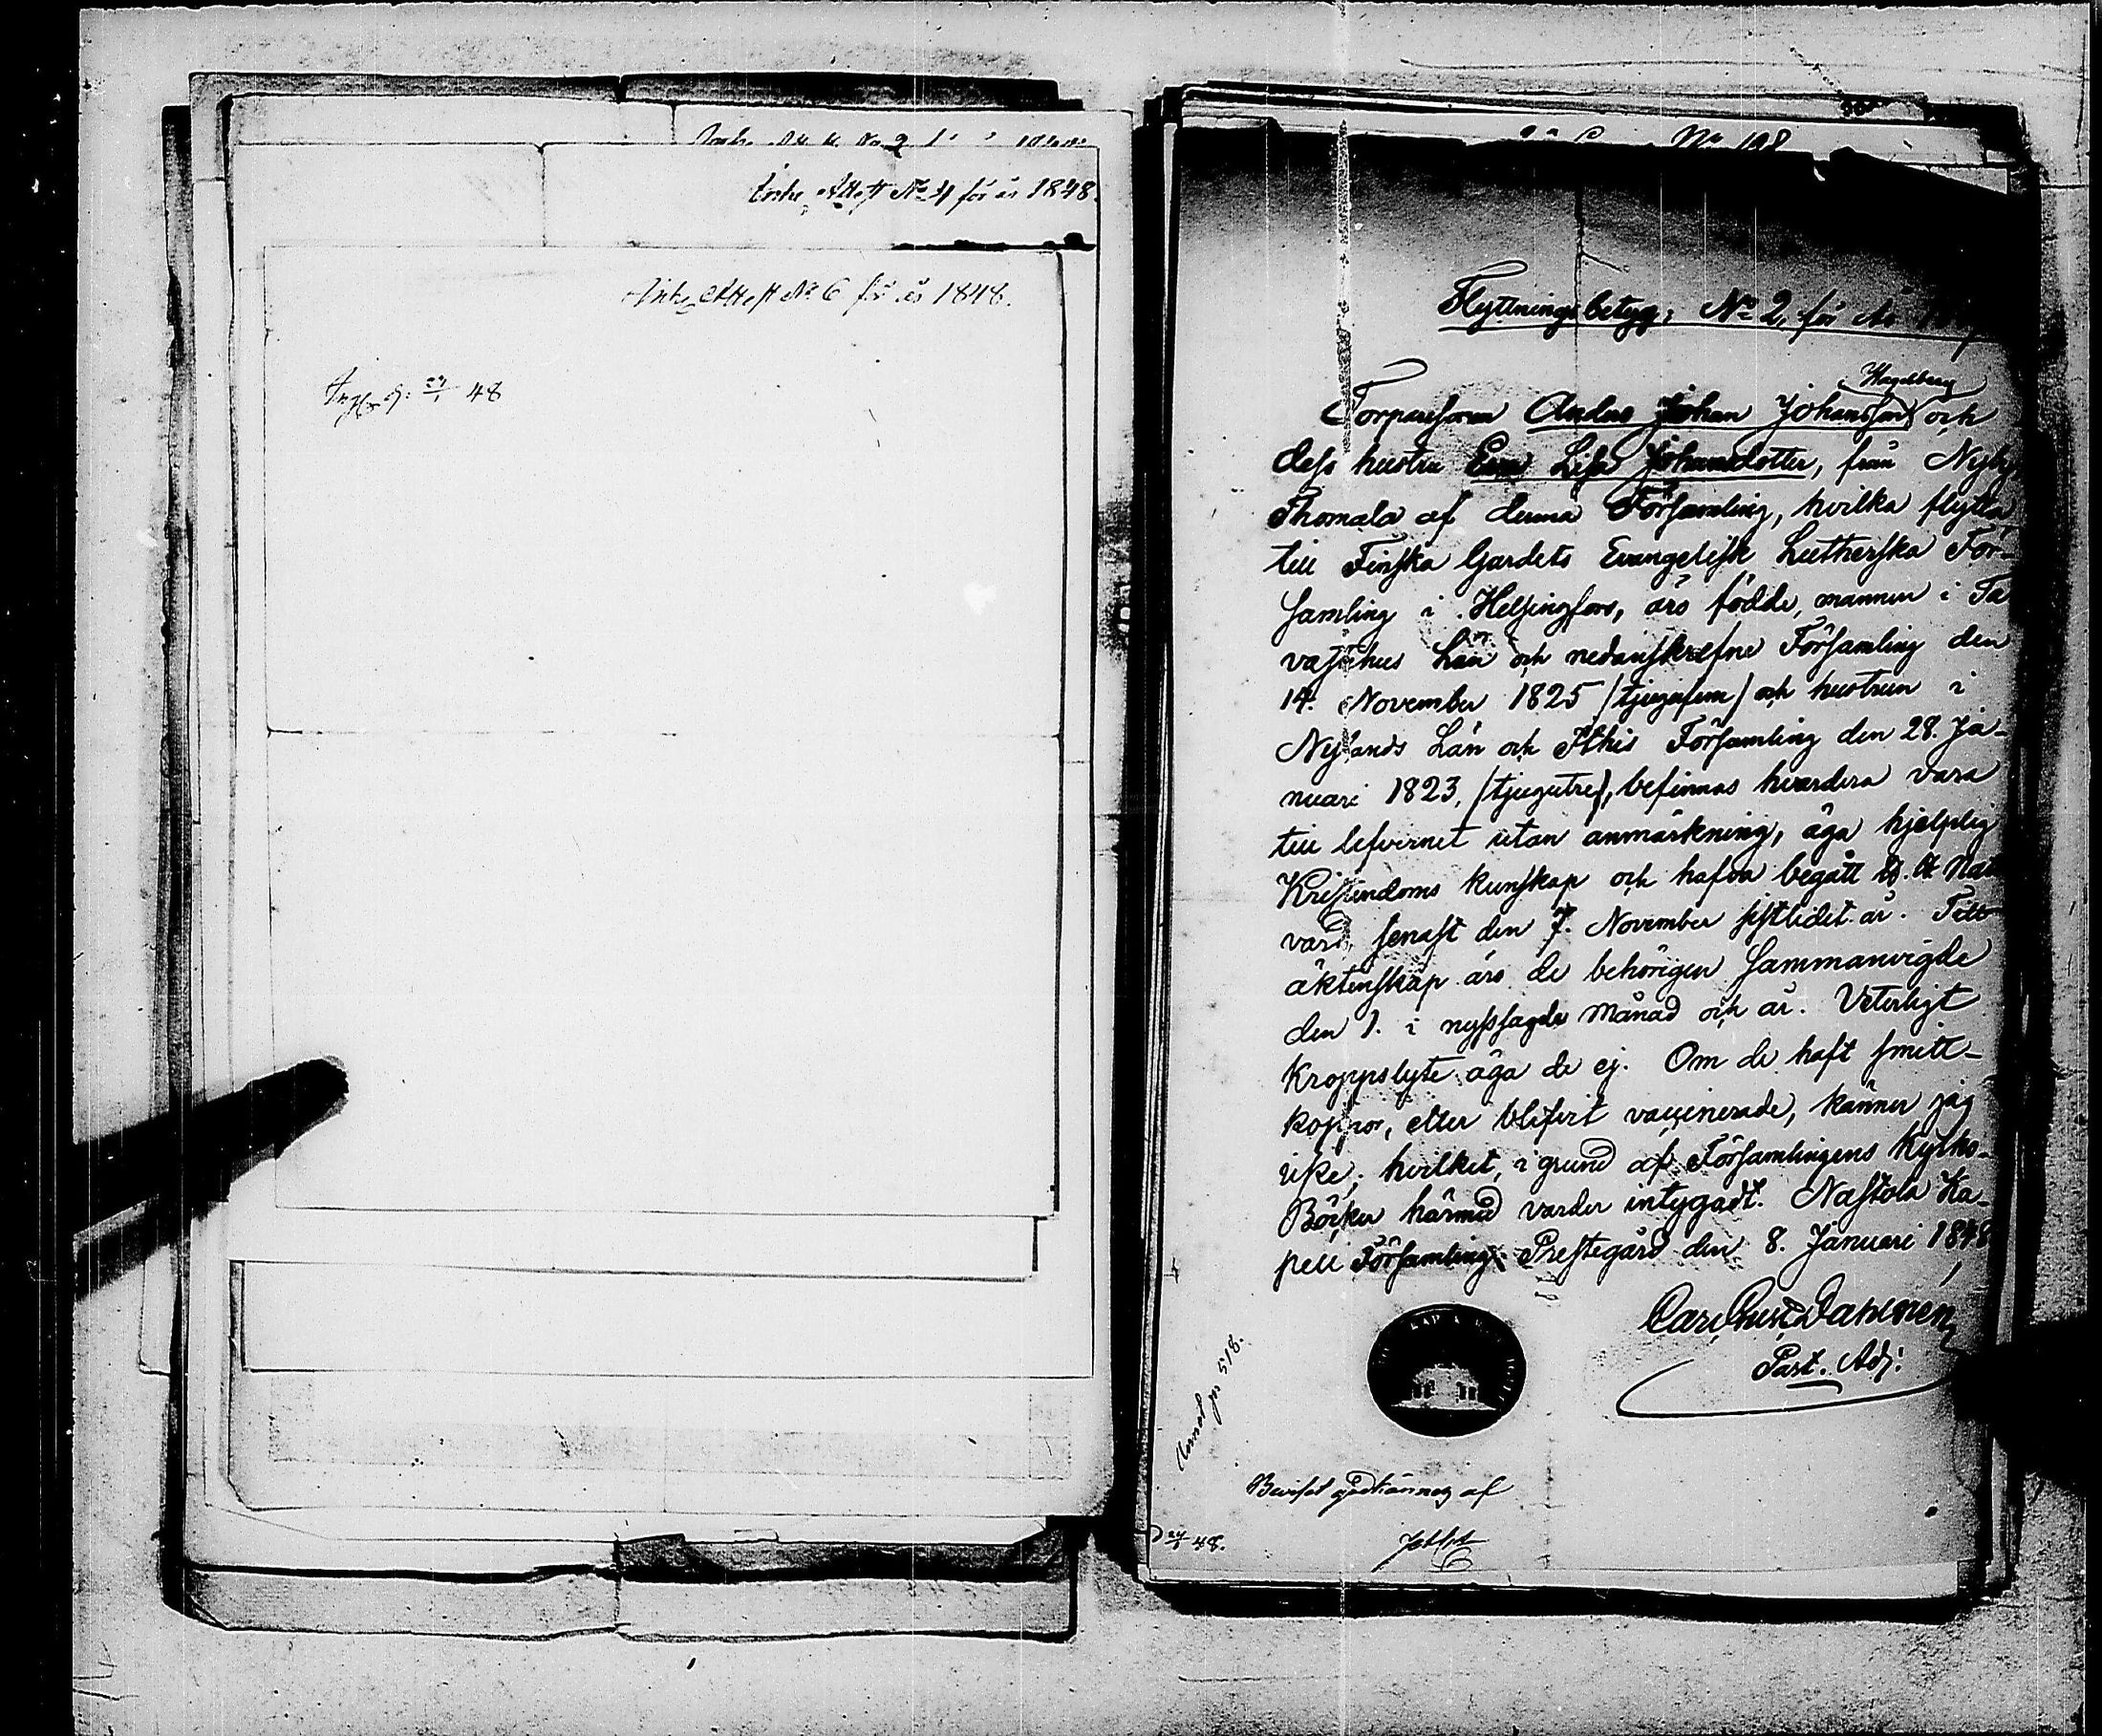 Attest No 4 för år 1848.
Attest No 6 för år 1848.
48
No 108
Flyttningsbetyg, No 2, för År
Hagelberg
Torparesonen Anders Johan Johansson och
dess hustru Eva Lisa Johansdotter, från Nyby
Thomala af denna Församling, hvilka flytta
till Finska Gardets Evangelisk Lutherska För-
samling i Helsingfors, äro födde, mannen i Ta
vastehus Län och nedanskrefne Församling den
14. November 1825 /tjugufem/ och hustrun i
Nylands Län och Itthis Församling den 28. Ja-
nuari 1823, /tjugutre/, befinnas hvardera vara
till lefvernet utan anmärkning, äga hjelplig
Kristendoms kunskap och hafva begått H. H. Natt
vard, senast den 7. November sistlidet år. Till
äktenskap äro de behörigen sammanvigde
den 1. i nyssagde månad och år. Veterligt
kroppslyte äga de ej. Om de haft smitt-
koppor, eller blifvit vaccinerade, känner jag
icke; hvilket, i grund af Församlingens Kyrko-
Böcker härmed varder intygadt. Nastola Ka-
pell Församlings Prestegård den 8. Januari 1848
Carl Gust. Dahlmén
Past. Adj:
518.
Beviset godkännes af
48.